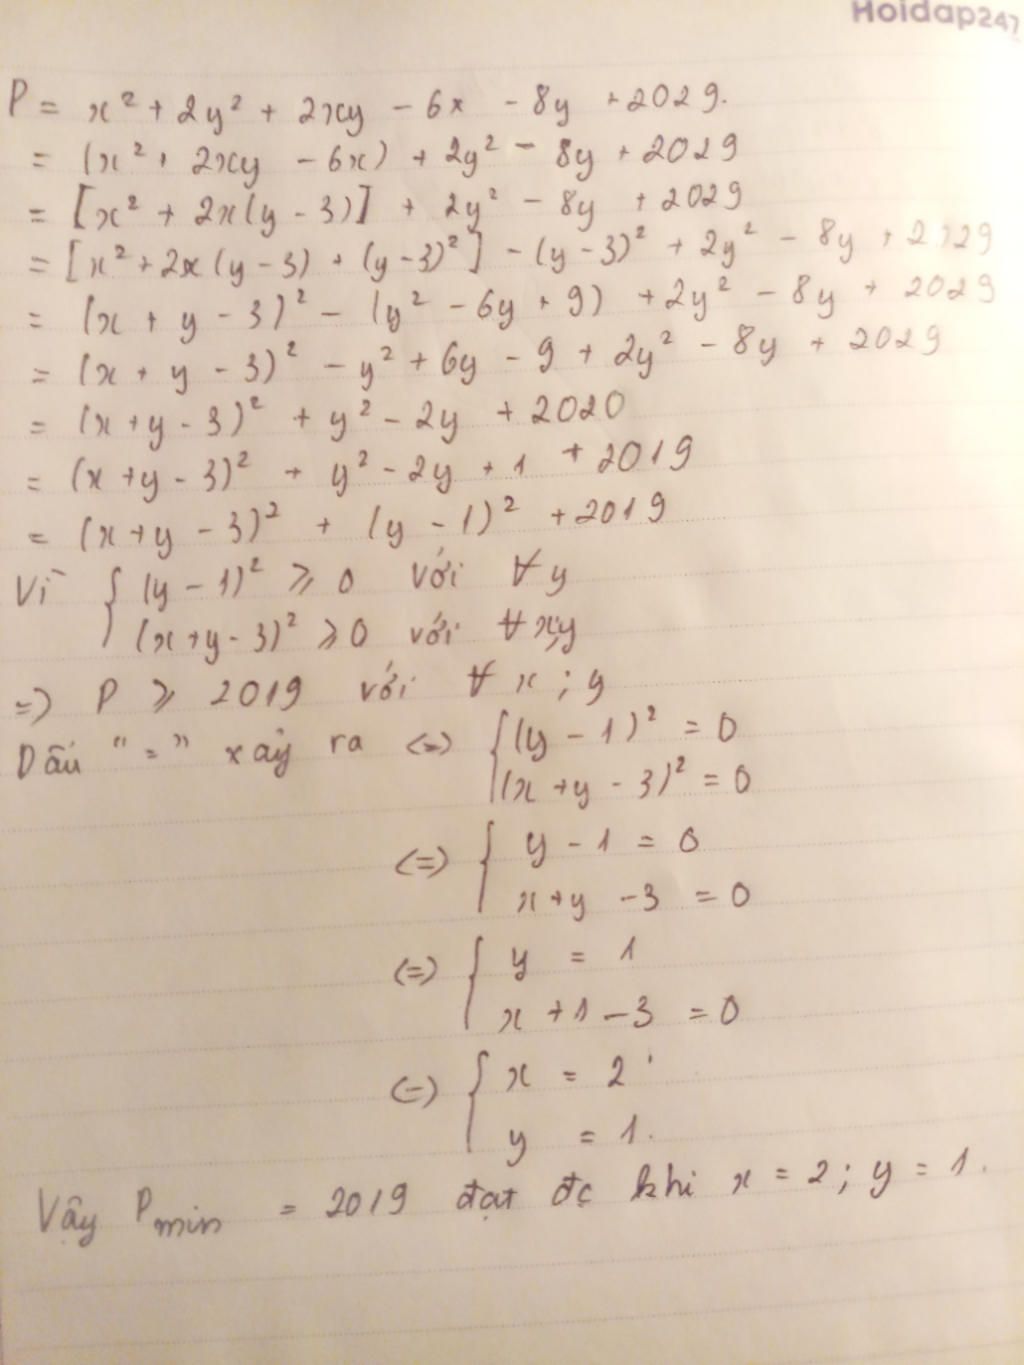 Hoidap247
P = x² + 2y² + 2xy - 6x - 8y + 2029.
= (x² + 2xy - 6x) + 2y² - 8y + 2029
= [x² + 2x(y - 3)] + 2y² - 8y + 2029
= [x² + 2x(y - 3) + (y - 3)²] - (y - 3)² + 2y² - 8y + 2029
= (x + y - 3)² - (y² - 6y + 9) + 2y² - 8y + 2029
= (x + y - 3)² - y² + 6y - 9 + 2y² - 8y + 2029
= (x + y - 3)² + y² - 2y + 2020
= (x + y - 3)² + y² - 2y + 1 + 2019
= (x + y - 3)² + (y - 1)² + 2019
Vì { (y - 1)² ⩾ 0 với ∀ y
(x + y - 3)² ⩾ 0 với ∀ x;y
=> P ⩾ 2019 với ∀ x ; y
Dấu "=" xảy ra <=> { (y - 1)² = 0
(x + y - 3)² = 0
<=> { y - 1 = 0
x + y - 3 = 0
<=> { y = 1
x + 1 - 3 = 0
<=> { x = 2
y = 1.
Vậy Pmin = 2019 đạt đc khi x = 2 ; y = 1.